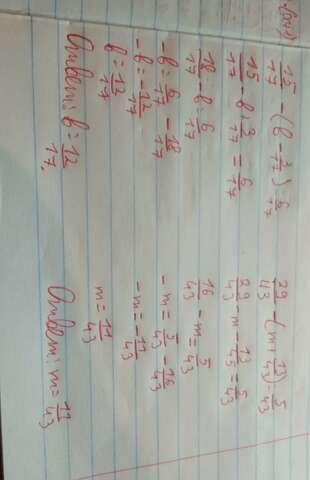 15/17 - (b - 3/17) = 6/17
15/17 - b + 3/17 = 6/17
18/17 - b = 6/17
-b = 6/17 - 18/17
-b = -12/17
b = 12/17
Ответ: b = 12/17.
29/43 - (m + 13/43) = 5/43
29/43 - m - 13/43 = 5/43
16/43 - m = 5/43
-m = 5/43 - 16/43
-m = -11/43
m = 11/43
Ответ: m = 11/43